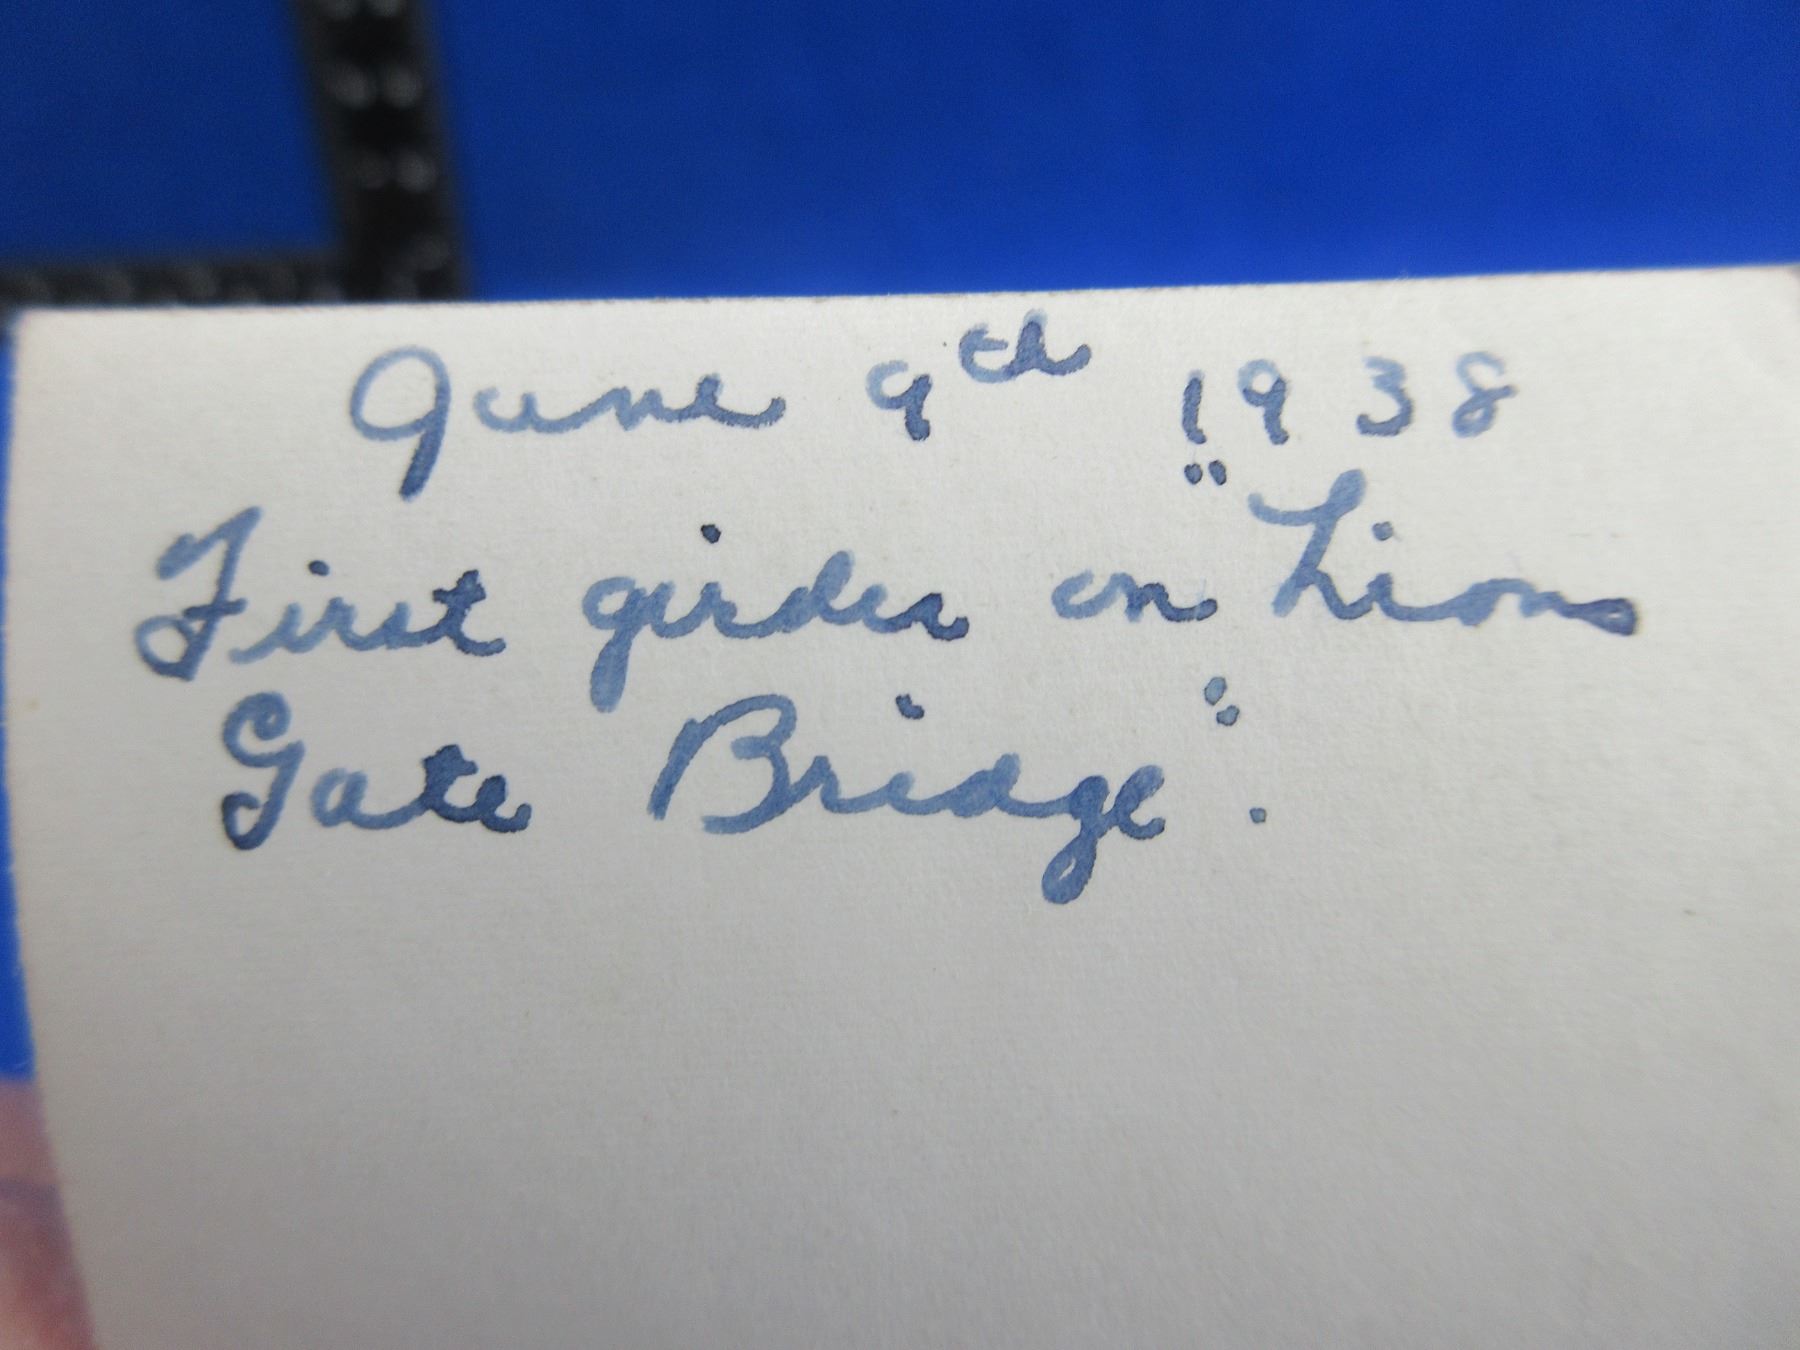 June 9th 1938
First girder on "Lions
Gate Bridge".